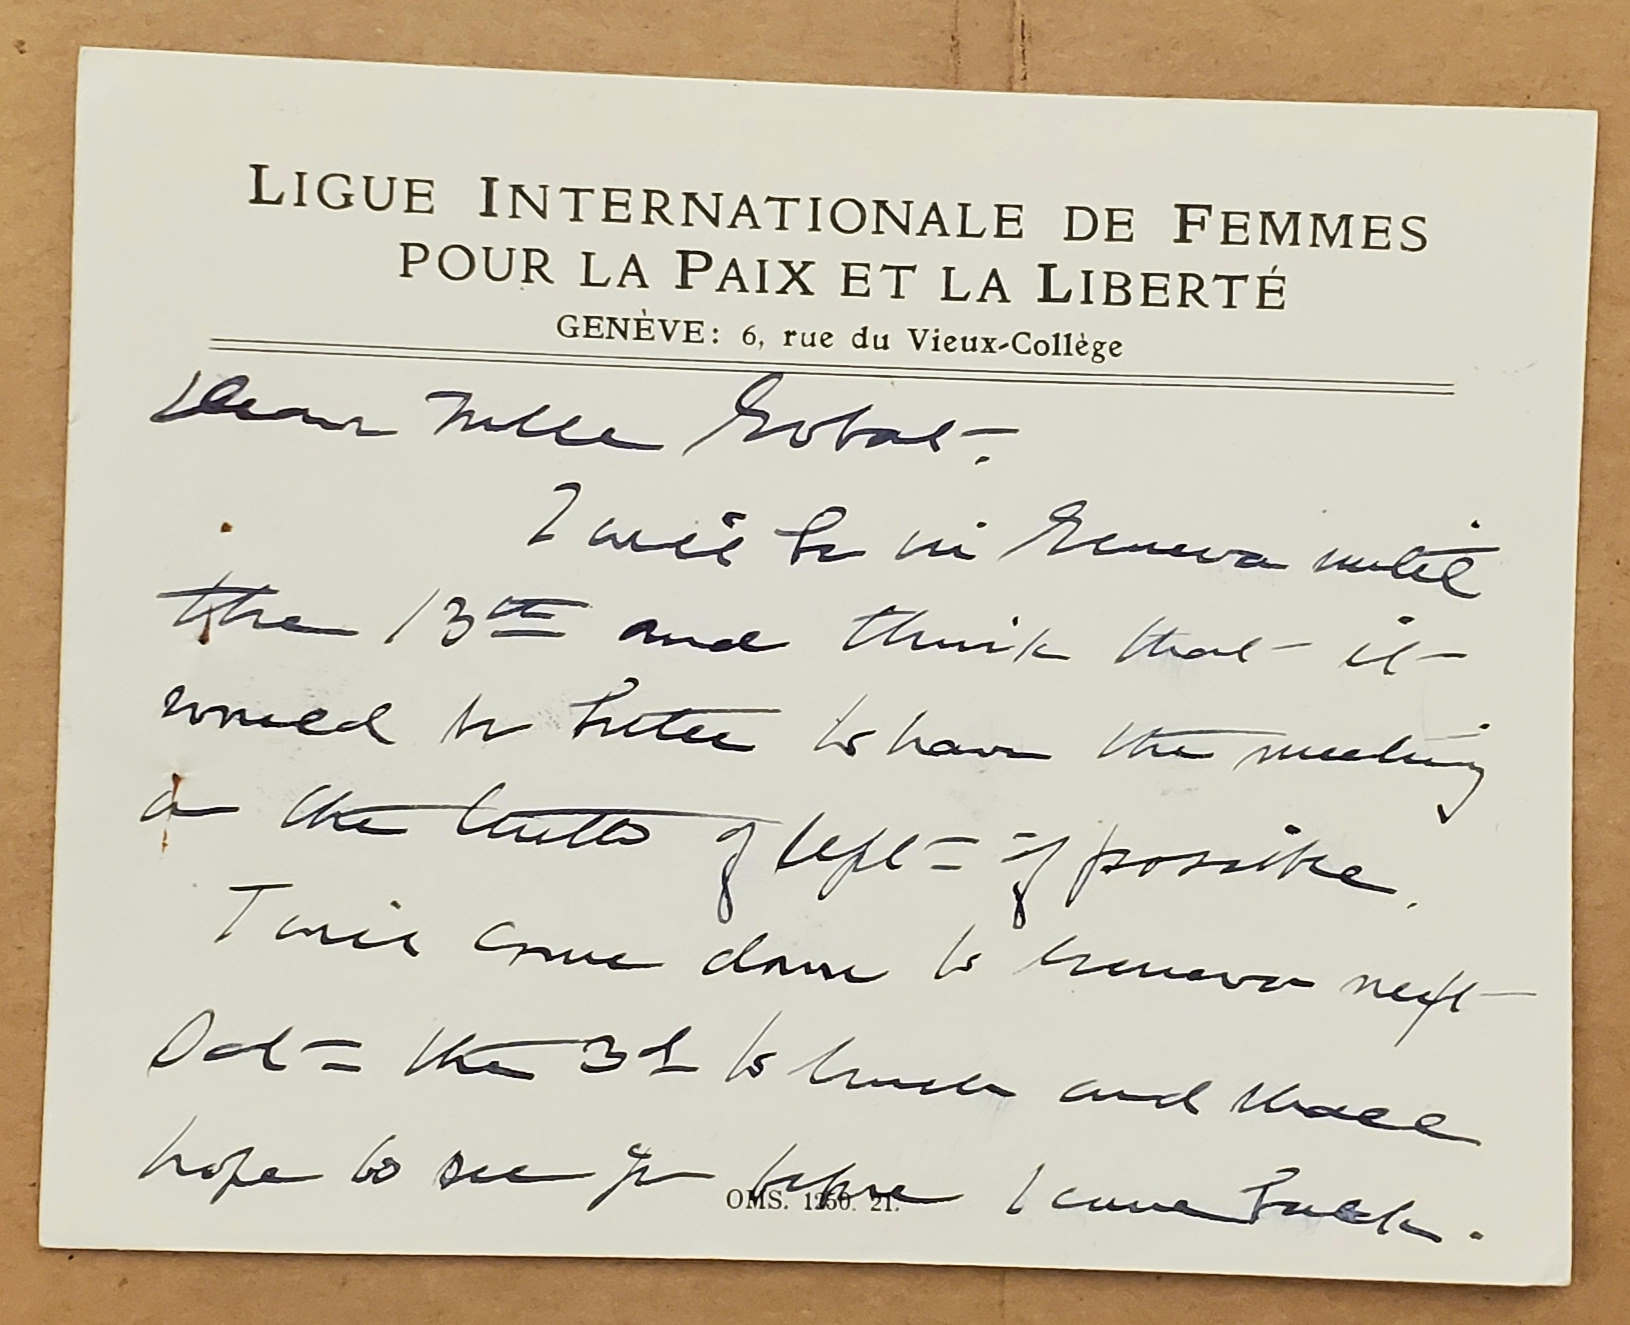 LIGUE INTERNATIONALE DE FEMMES
POUR LA PAIX ET LA LIBERTÉ
GENÈVE: 6, rue du Vieux-Collège
Dear Mlle Gobat-
I will be in Geneva until
the 13th and think that it
would be better to have the meeting
on the tenth of Sept = if possible.
I will come down to Geneva next
Sat = the 3d to lunch and shall
hope to see you before I come back.
OMS. 1250. 21.